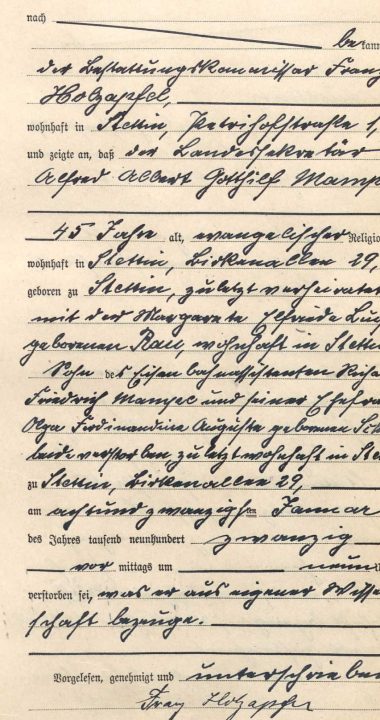 nach
bekann
der Bestattungskommissar Franz
Holzapfel,
wohnhaft in Stettin, Petrihofstraße 1,
und zeigte an, daß der Landessekretär
Alfred Albert Gotthilf
45 Jahre alt, evangelischer Religio
wohnhaft in Stettin, Birkenallee 29,
geboren zu Stettin, zuletzt verheiratet
mit der Margarete Elfriede
geborenen Rau, wohnhaft in Stettin
Sohn des Eisenbahnassistenten
Friedrich und seiner Ehefrau
Olga Ferdinandine Auguste geborenen
beide verstorben zuletzt wohnhaft in Stet
zu Stettin, Birkenallee 29,
am achtundzwanzigsten Januar
des Jahres tausend neunhundert zwanzig
vor mittags um neun
verstorben sei, was er aus eigener Wissen
schaft bezeuge.
Vorgelesen, genehmigt und unterschrieben
Franz Holzapfel